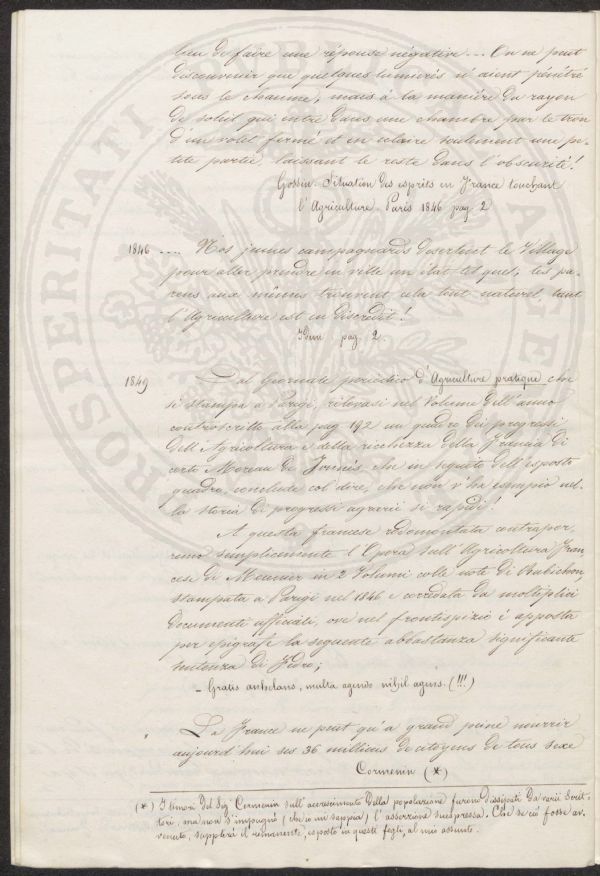 lieu de faire une réponse négative... On ne peut
disconvenir que quelques lumières n'aient pénétré
sous le chaume, mais à la manière du rayon
de soleil qui entre dans une chambre par le trou
d'un volet fermé et en eclaire seulement une pe-
tite partie, laissant le reste dans l'obscurité!
Gossin - Situation des esprits en France touchant
l'Agriculture - Paris 1846 pag. 2
1846 .... Nos jeunes campagnards desertent le Village
pour aller prendre en ville un état tel quel; les pa-
rens aux mêmes trouvent cela tout naturel, tant
l'Agriculture est en discrédit!
Idem pag. 2.
1849 Dal Giornale periodico d'Agriculture pratique che
si stampa a Parigi, rilevasi nel Volume dell'anno
controscritto alla pag 192 un quadro dei progressi
dell'Agricoltura e della ricchezza della Francia di
certo Moreau de Jonnés, che in seguito dell'esposto
quadro, conclude col dire, che non v'ha esempio nel-
la storia di progressi agrarii sì rapidi!
A questa francese rodomontata contrapor-
remo semplicemente l'Opera sull'Agricoltura Fran-
cese di Meunier in 2 Volumi colle note di Rubichon,
stampata a Parigi nel 1846 e corredata da moltiplici
documenti ufficiali, ove nel frontispizio è apposta
per epigrafe la seguente abbastanza significante
sentenza di Fedro;
- Gratis anhelans, multa agendo nihil agens. (!!!)
La France ne peut qu'a grand peine nourrir
aujourd'hui ses 36 millions de citoyens de tous sexe
Cormenin (*)
(*) I timori del Sig. Cormenin sull'accrescimento della popolazione furono dissipati da varii Scrit-
tori, ma non s'impugnò (che io mi sappia) l'asserzione suespressa. Che se ciò fosse av-
venuto, supplirà il rimanente, esposto in questi fogli, al mio assunto.